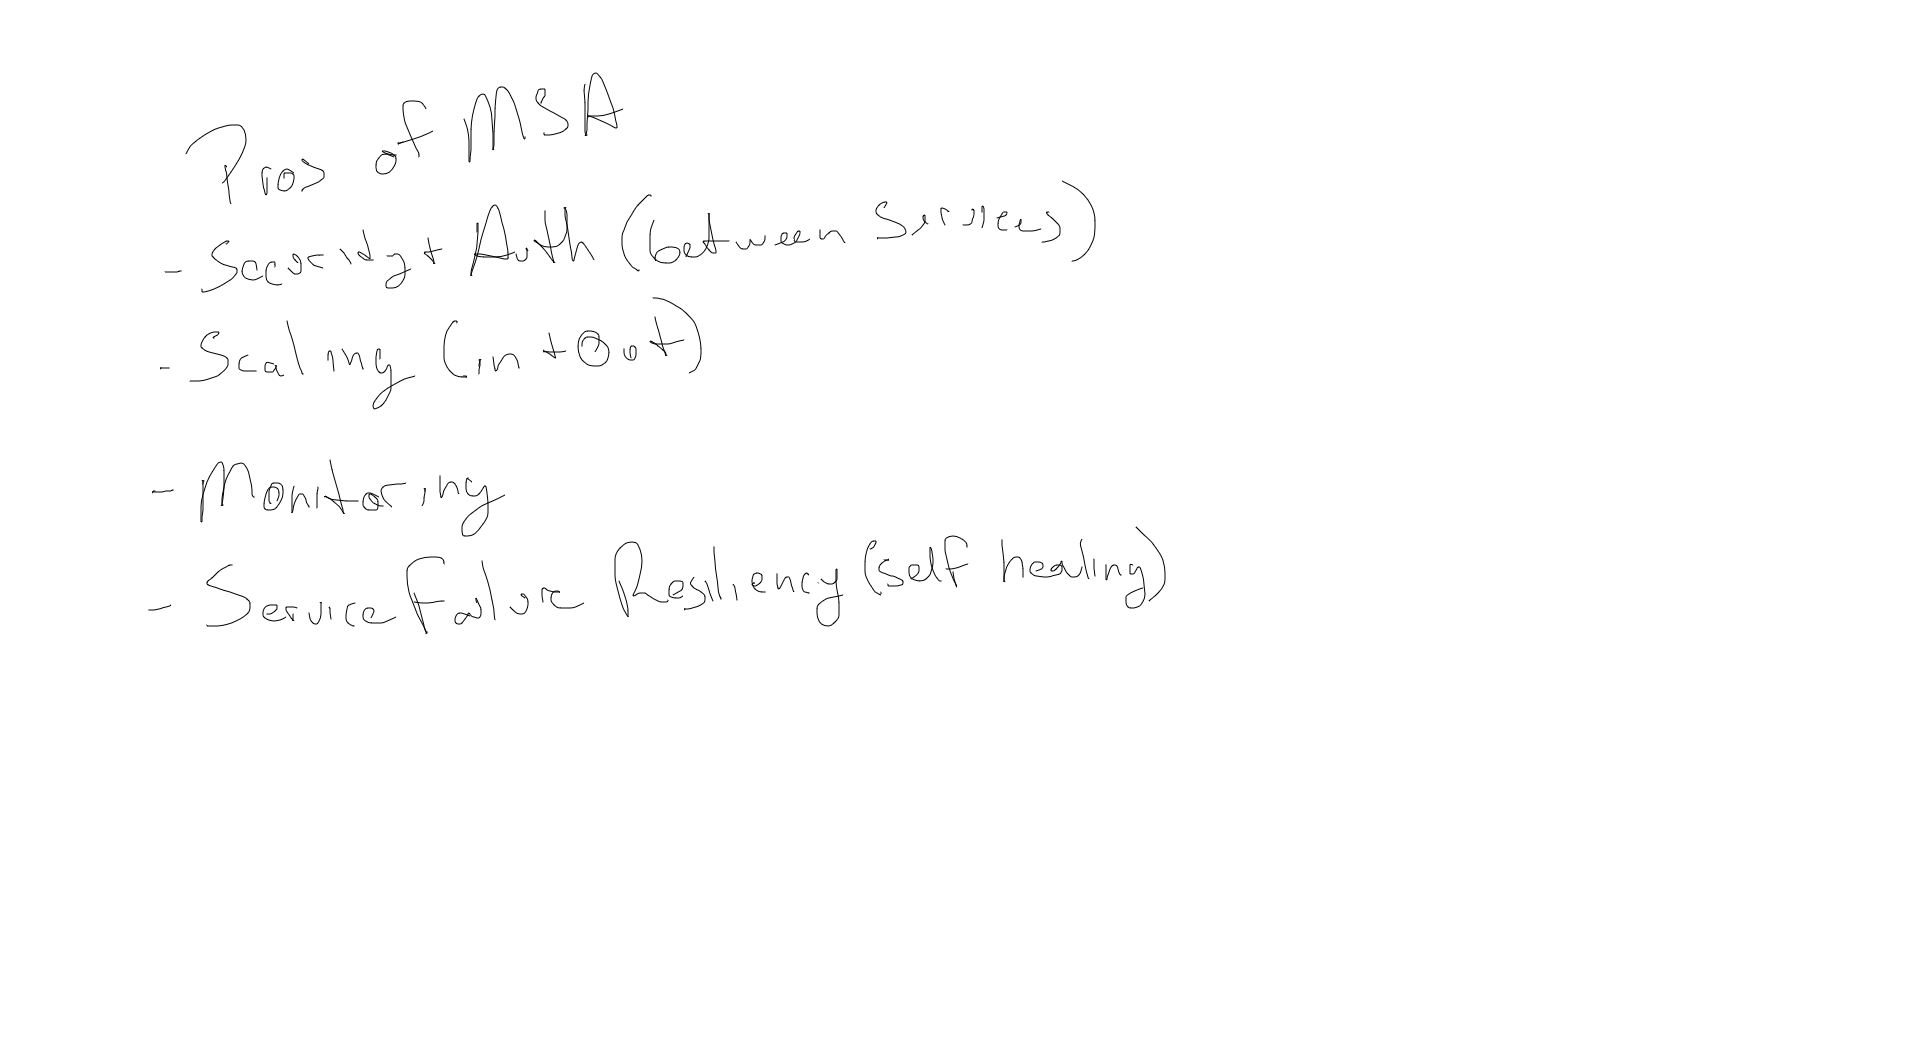 Pros of MSA
- Security + Auth (between Services)
- Scaling (in + Out)
- Monitoring
- Service Failure Resiliency (self healing)